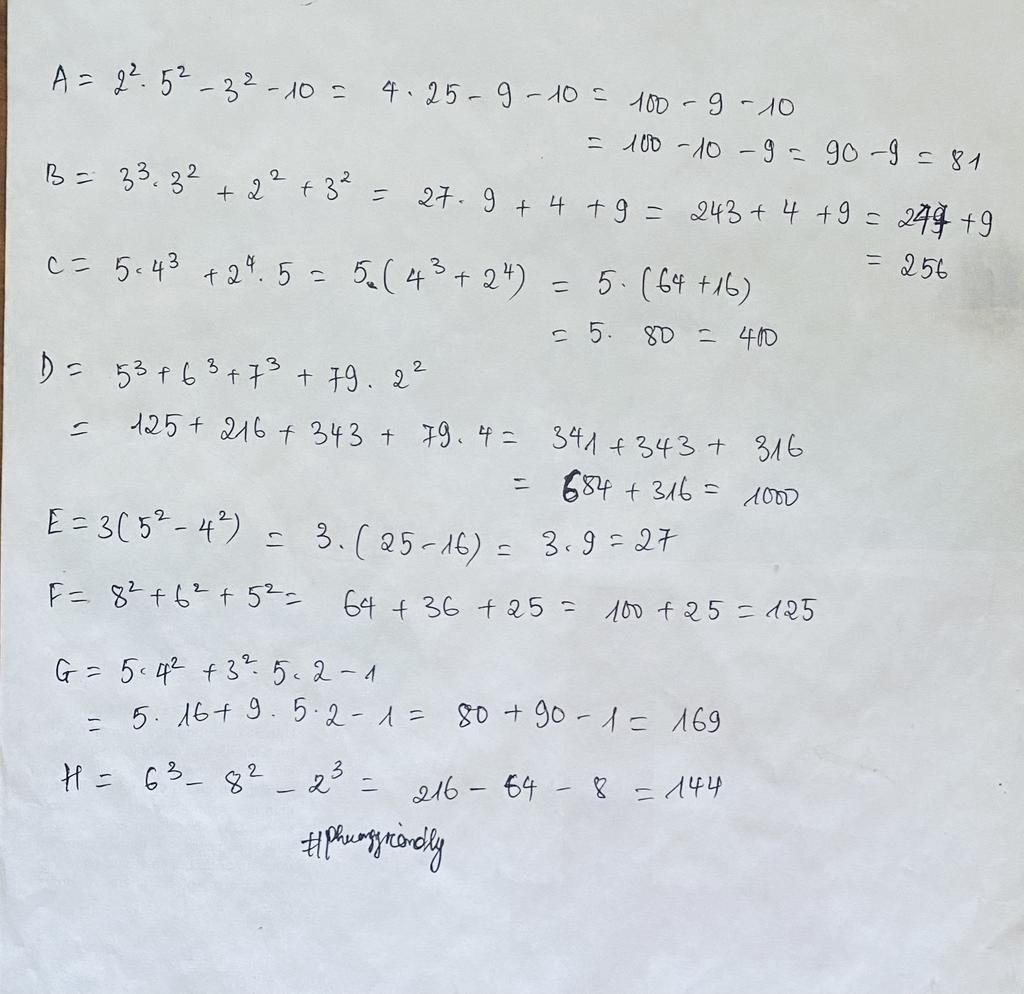 A = 2². 5² - 3² - 10 = 4 . 25 - 9 - 10 = 100 - 9 - 10
= 100 - 10 - 9 = 90 - 9 = 81
B = 3³. 3² + 2² + 3² = 27. 9 + 4 + 9 = 243 + 4 + 9 = 247 + 9
= 256
C = 5.4³ + 2⁴. 5 = 5.(4³ + 2⁴) = 5. (64 + 16)
= 5. 80 = 400
D = 5³ + 6³ + 7³ + 79. 2²
= 125 + 216 + 343 + 79. 4 = 341 + 343 + 316
= 684 + 316 = 1000
E = 3(5² - 4²) = 3.(25 - 16) = 3.9 = 27
F = 8² + 6² + 5² = 64 + 36 + 25 = 100 + 25 = 125
G = 5.4² + 3². 5. 2 - 1
= 5. 16 + 9. 5.2 - 1 = 80 + 90 - 1 = 169
H = 6³ - 8² - 2³ = 216 - 64 - 8 = 144